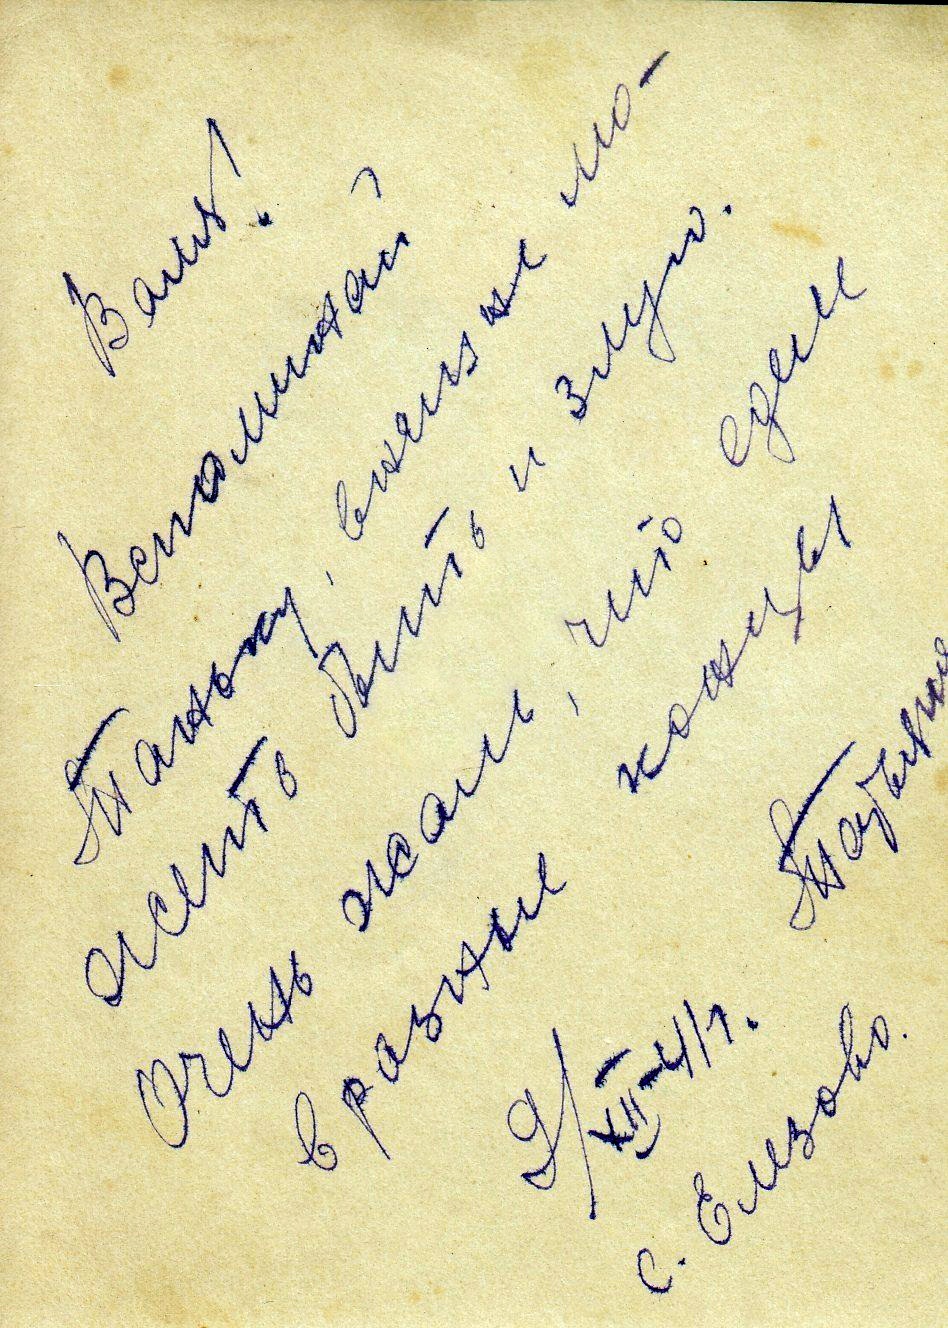 Валя!
Вспоминай
Таньку, внешне мо-
жеть быть и злую.
Очень жаль, что едем
в разные концы
Татьяна
9/XII-41 г.
с. Елизово.